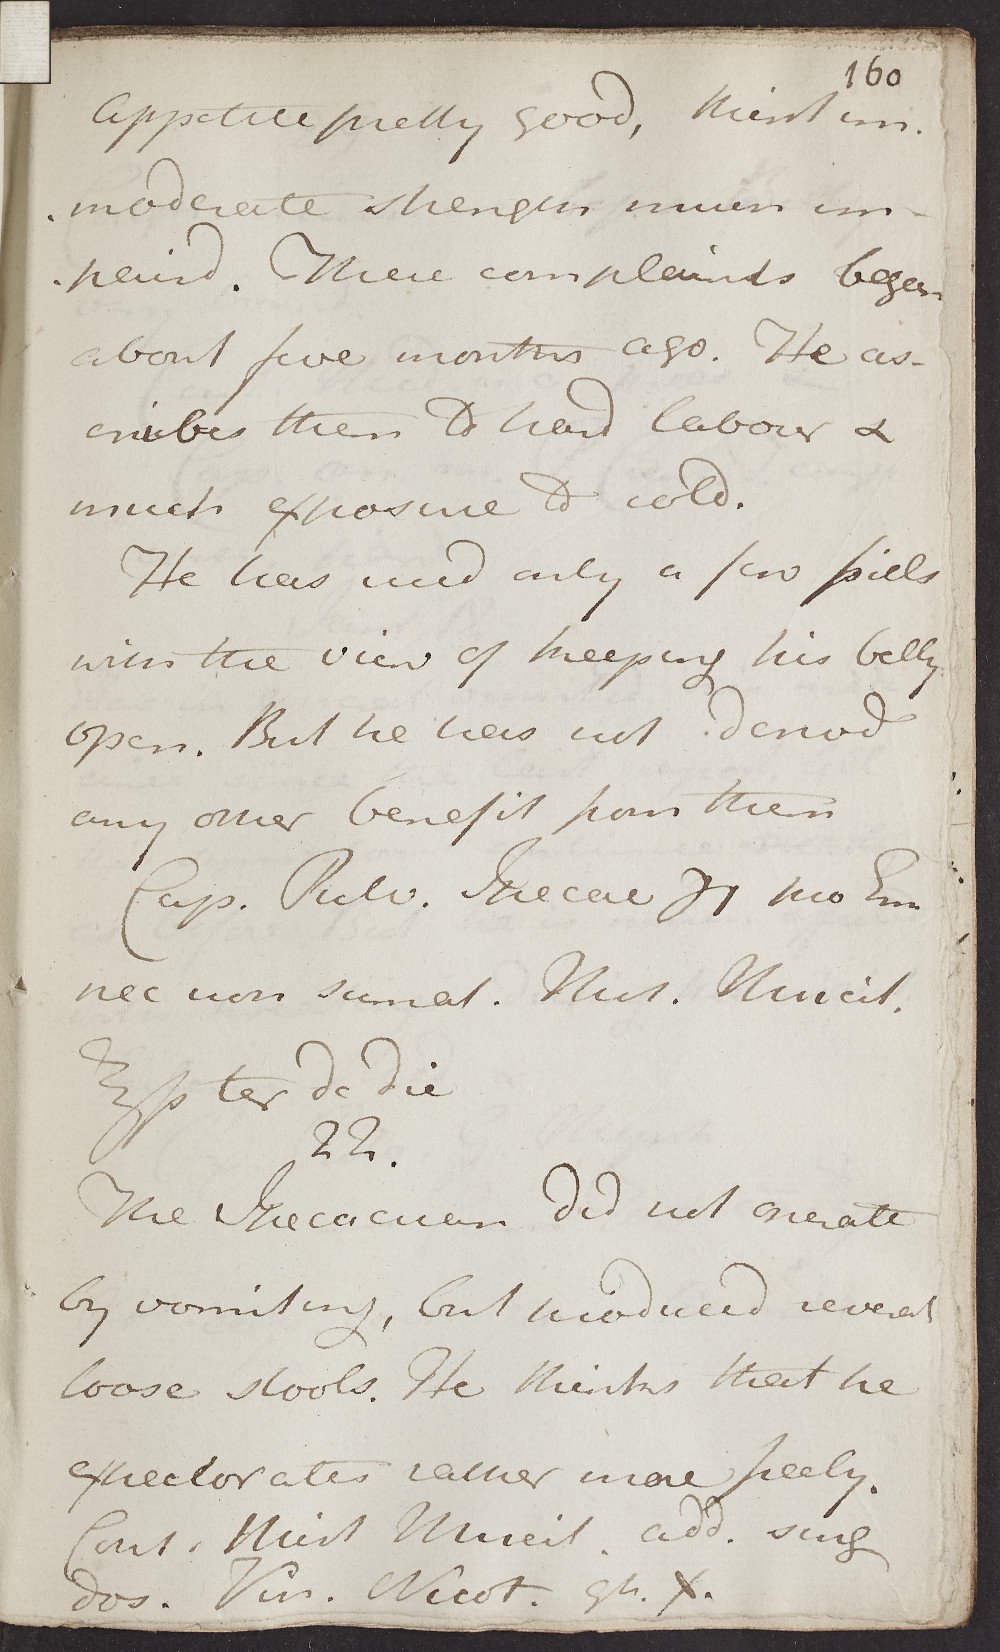 160
Appetite pretty good, thirst im-
-moderate strength much im-
-paird. These complaints began
about five months ago. He as-
cribes them to hard labour &
much exposure to cold.
He has used only a few pills
with the view of keeping his belly
open. But he has not derived
any other benefit from them
Cap. Pulv. Ipecac ʒı pro Em.
nec non sumat. Mist. Mucil.
℥ss ter de die
22.
The Ipecacuan did not operate
by vomiting, but produced several
loose stools. He thinks that he
expectorates rather more freely.
Cont. Mist Mucil. add. sing
dos. Vin. Nicot. gtt. X.